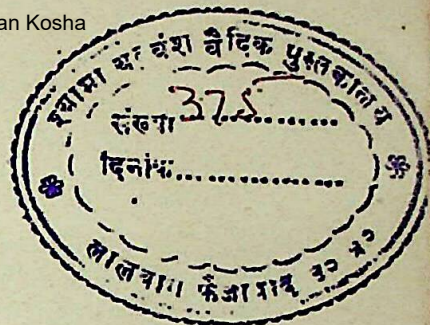 an Kosha
श्यामा वैदिक पुस्तकालय
संख्या 375
दिनांक
लालबाग फैजाबाद उ० प्र०